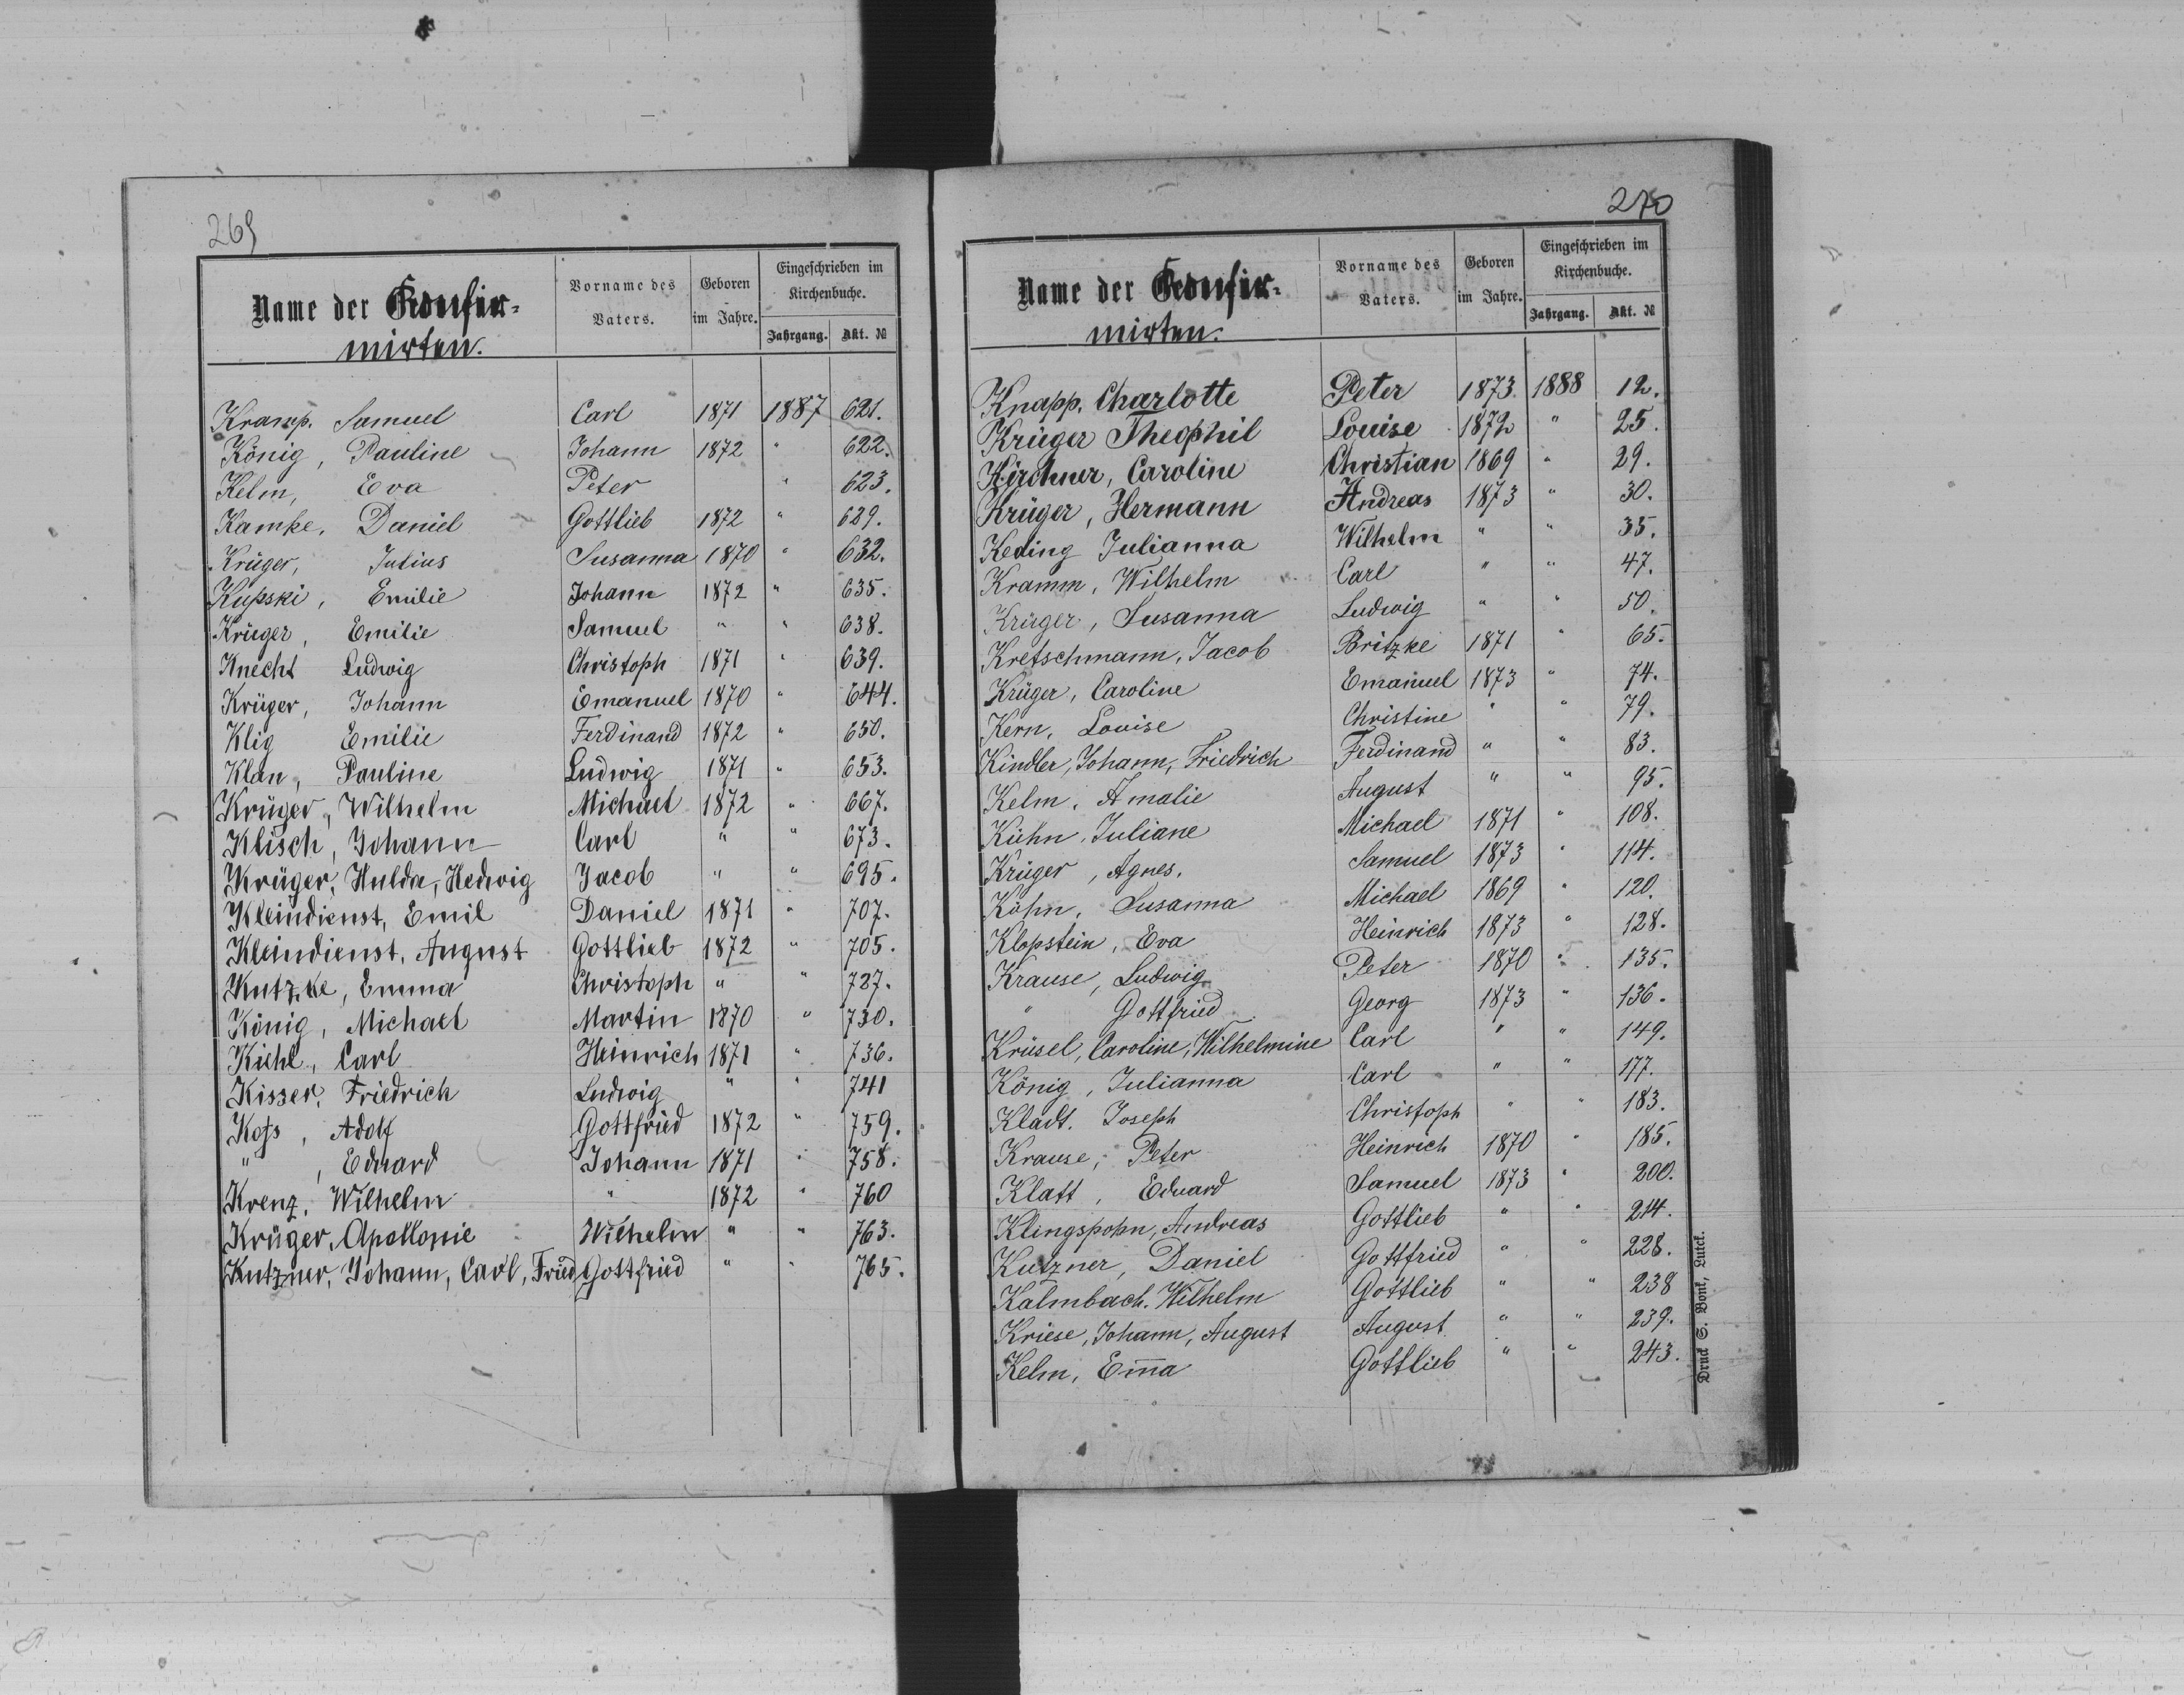 269
Name der Konfir-
mirten.
Vorname des Vaters.
Geboren im Jahre.
Eingeschrieben im Kirchenbuche.
Jahrgang. Akt. №
Kramp. Samuel Carl 1871 1887 621.
König, Pauline Johann 1872 " 622.
Kelm, Eva Peter " 623.
Kamke, Daniel Gottlieb 1872 " 629.
Krüger, Julius Susanna 1870 " 632.
Kupski, Emilie Johann 1872 " 635.
Krüger, Emilie Samuel " " 638.
Knecht Ludwig Christoph 1871 " 639.
Krüger, Johann Emanuel 1870 " 644.
Klig Emilie Ferdinand 1872 " 650.
Klan, Pauline Ludwig 1871 " 653.
Krüger, Wilhelm Michael 1872 " 667.
Klisch, Johann Carl " " 673.
Krüger, Hulda, Hedwig Jacob " " 695.
Kleindienst, Emil Daniel 1871 " 707.
Kleindienst, August Gottlieb 1872 " 705.
Kutzke, Emma Christoph " " 727.
König, Michael Martin 1870 " 730.
Kiehl, Carl Heinrich 1871 " 736.
Kisser, Friedrich Ludwig " " 741
Koß, Adolf Gottfried 1872 " 759.
" , Eduard Johann 1871 " 758.
Krenz, Wilhelm " 1872 " 760
Krüger, Apollonie Wilhelm " " 763.
Kutzner, Johann, Carl, Fried Gottfried " " 765.
270
Name der Konfir-
mirten.
Vorname des Vaters.
Geboren im Jahre.
Eingeschrieben im Kirchenbuche.
Jahrgang. Akt. №
Knapp, Charlotte Peter 1873. 1888 12.
Krüger Theophil Louise 1872 " 25.
Kirchner, Caroline Christian 1869 " 29.
Krüger, Hermann Andreas 1873 " 30.
Keding Julianna Wilhelm " " 35.
Kramm, Wilhelm Carl " " 47.
Krüger, Susanna Ludwig " " 50.
Kretschmann, Jacob Britzke 1871 " 65.
Krüger, Caroline Emanuel 1873 " 74.
Kern, Louise Christine " " 79.
Kindler, Johann, Friedrich Ferdinand " " 83.
Kelm, Amalie August " " 95.
Kühn, Juliane Michael 1871 " 108.
Krüger, Agnes. Samuel 1873 " 114.
Köhn, Susanna Michael 1869 " 120.
Klopstein, Eva Heinrich 1873 " 128.
Krause, Ludwig Peter 1870 " 135.
" Gottfried Georg 1873 " 136.
Krüsel, Caroline, Wilhelmine Carl " " 149.
König, Julianna Carl " " 177.
Kladt. Joseph Christoph " " 183.
Krause, Peter Heinrich 1870 " 185.
Klatt, Eduard Samuel 1873 " 200.
Klingspohn, Andreas Gottlieb " " 214.
Kutzner, Daniel Gottfried " " 228.
Kalmbach. Wilhelm Gottlieb " " 238
Kriese, Johann, August August " " 239.
Kelm, Em̄a Gottlieb " " 243.
Druck S. Bonk, Lutck.